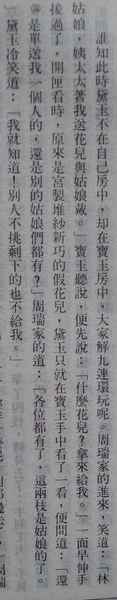 誰知此時黛玉不在自己房中，却在寶玉房中，大家解九連環玩呢。周瑞家的進來，笑道：「林
姑娘，姨太太著我送花兒與姑娘戴。」寶玉聽說，便先說：「什麼花兒？拿來給我。」一面早伸手
接過了，開匣看時，原來是宮製堆紗新巧的假花兒，黛玉只就在寶玉手中看了一看，便問道：「還
是單送我一個人的，還是別的姑娘們都有？」周瑞家的道：「各位都有了，這兩枝是姑娘的了。」
黛玉冷笑道：「我就知道！別人不挑剩下的也不給我。」